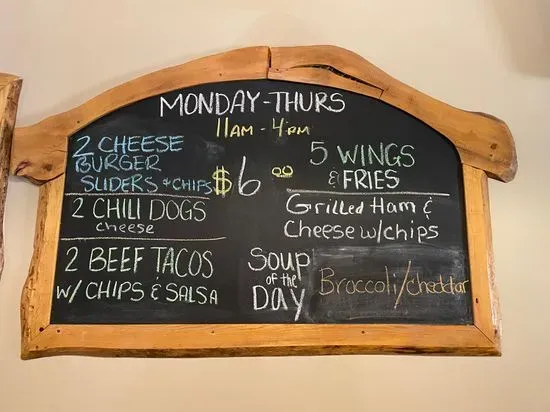 MONDAY-THURS
11AM - 4PM
2 CHEESE
BURGER
SLIDERS & CHIPS
2 CHILI DOGS
cheese
2 BEEF TACOS
W/ CHIPS & SALSA
$6.00
5 WINGS
& FRIES
Grilled Ham &
Cheese w/chips
Soup
of the
Day
Broccoli/cheddar